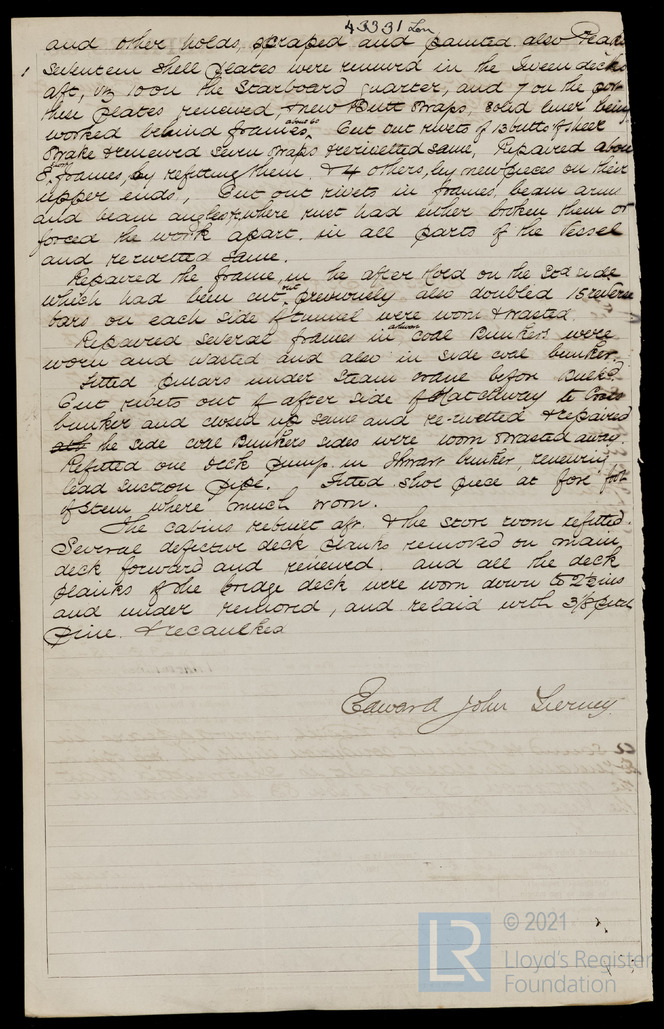 43331 Lon
and other holds, scraped and painted also Peaks
Seventeen shell plates were renewed in the tween decks
aft, viz 10 on the Starboard quarter, and 7 on the port
then plates renewed, & new Butt straps, solid liner being
worked behind frames, about 60 Cut out rivets of 13 butts of sheer
strake & renewed seven straps & rerivetted same, Repaired about
8 frames, by refitting them. & 4 others, by new pieces on their
upper ends, Cut out rivets in frames, beam arms
and beam angles, where rust had either broken them or
forced the work apart. in all parts of the Vessel
and rerivetted same.
Repaired the frame, in the after Hold on the Stard side
which had been cut out previously also doubled 15 reverse
bars on each side of tunnel were worn & wasted
Repaired several frames in coal Bunkers were
worn and wasted and also in side coal bunker
Fitted pillars under Steam crane before
Cut rivets out of after side of Hatchway to Cross
bunker and closed up same and re-rivetted & repaired
the side coal Bunkers sides were worn & wasted away.
Refitted one deck pump in thwart bunker, renewing
lead suction pipe. Fitted shoe piece at fore foot
of Stem where much worn.
The cabins rebuilt aft. & the store room refitted.
Several defective deck planks removed on main
deck forward and renewed. and all the deck
planks of the bridge deck were worn down to 2½ ins
and under removed, and relaid with 3½ pitch
pine. & recaulked
Edward John Tierney
LR © 2021
Lloyd's Register
Foundation